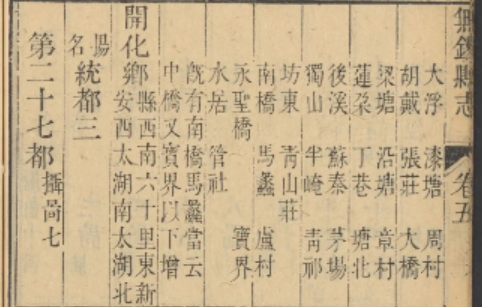 無錫縣志 卷五
大浮 漆塘 周村
胡戴 張莊 大橋
梁塘 沿塘 章村
蓮朶 丁巷 塘北
後溪 蘇泰 茅場
獨山 半崦 靑祁
坊東 靑山莊
南橋 馬蠡 盧村
永聖橋 寶界
水居 管社
旣有南橋馬蠡當云
中橋又寶界以下增
開化鄉 縣西南六十里東新
安西太湖南太湖北
揚名 統都三
第二十七都 攝啚七